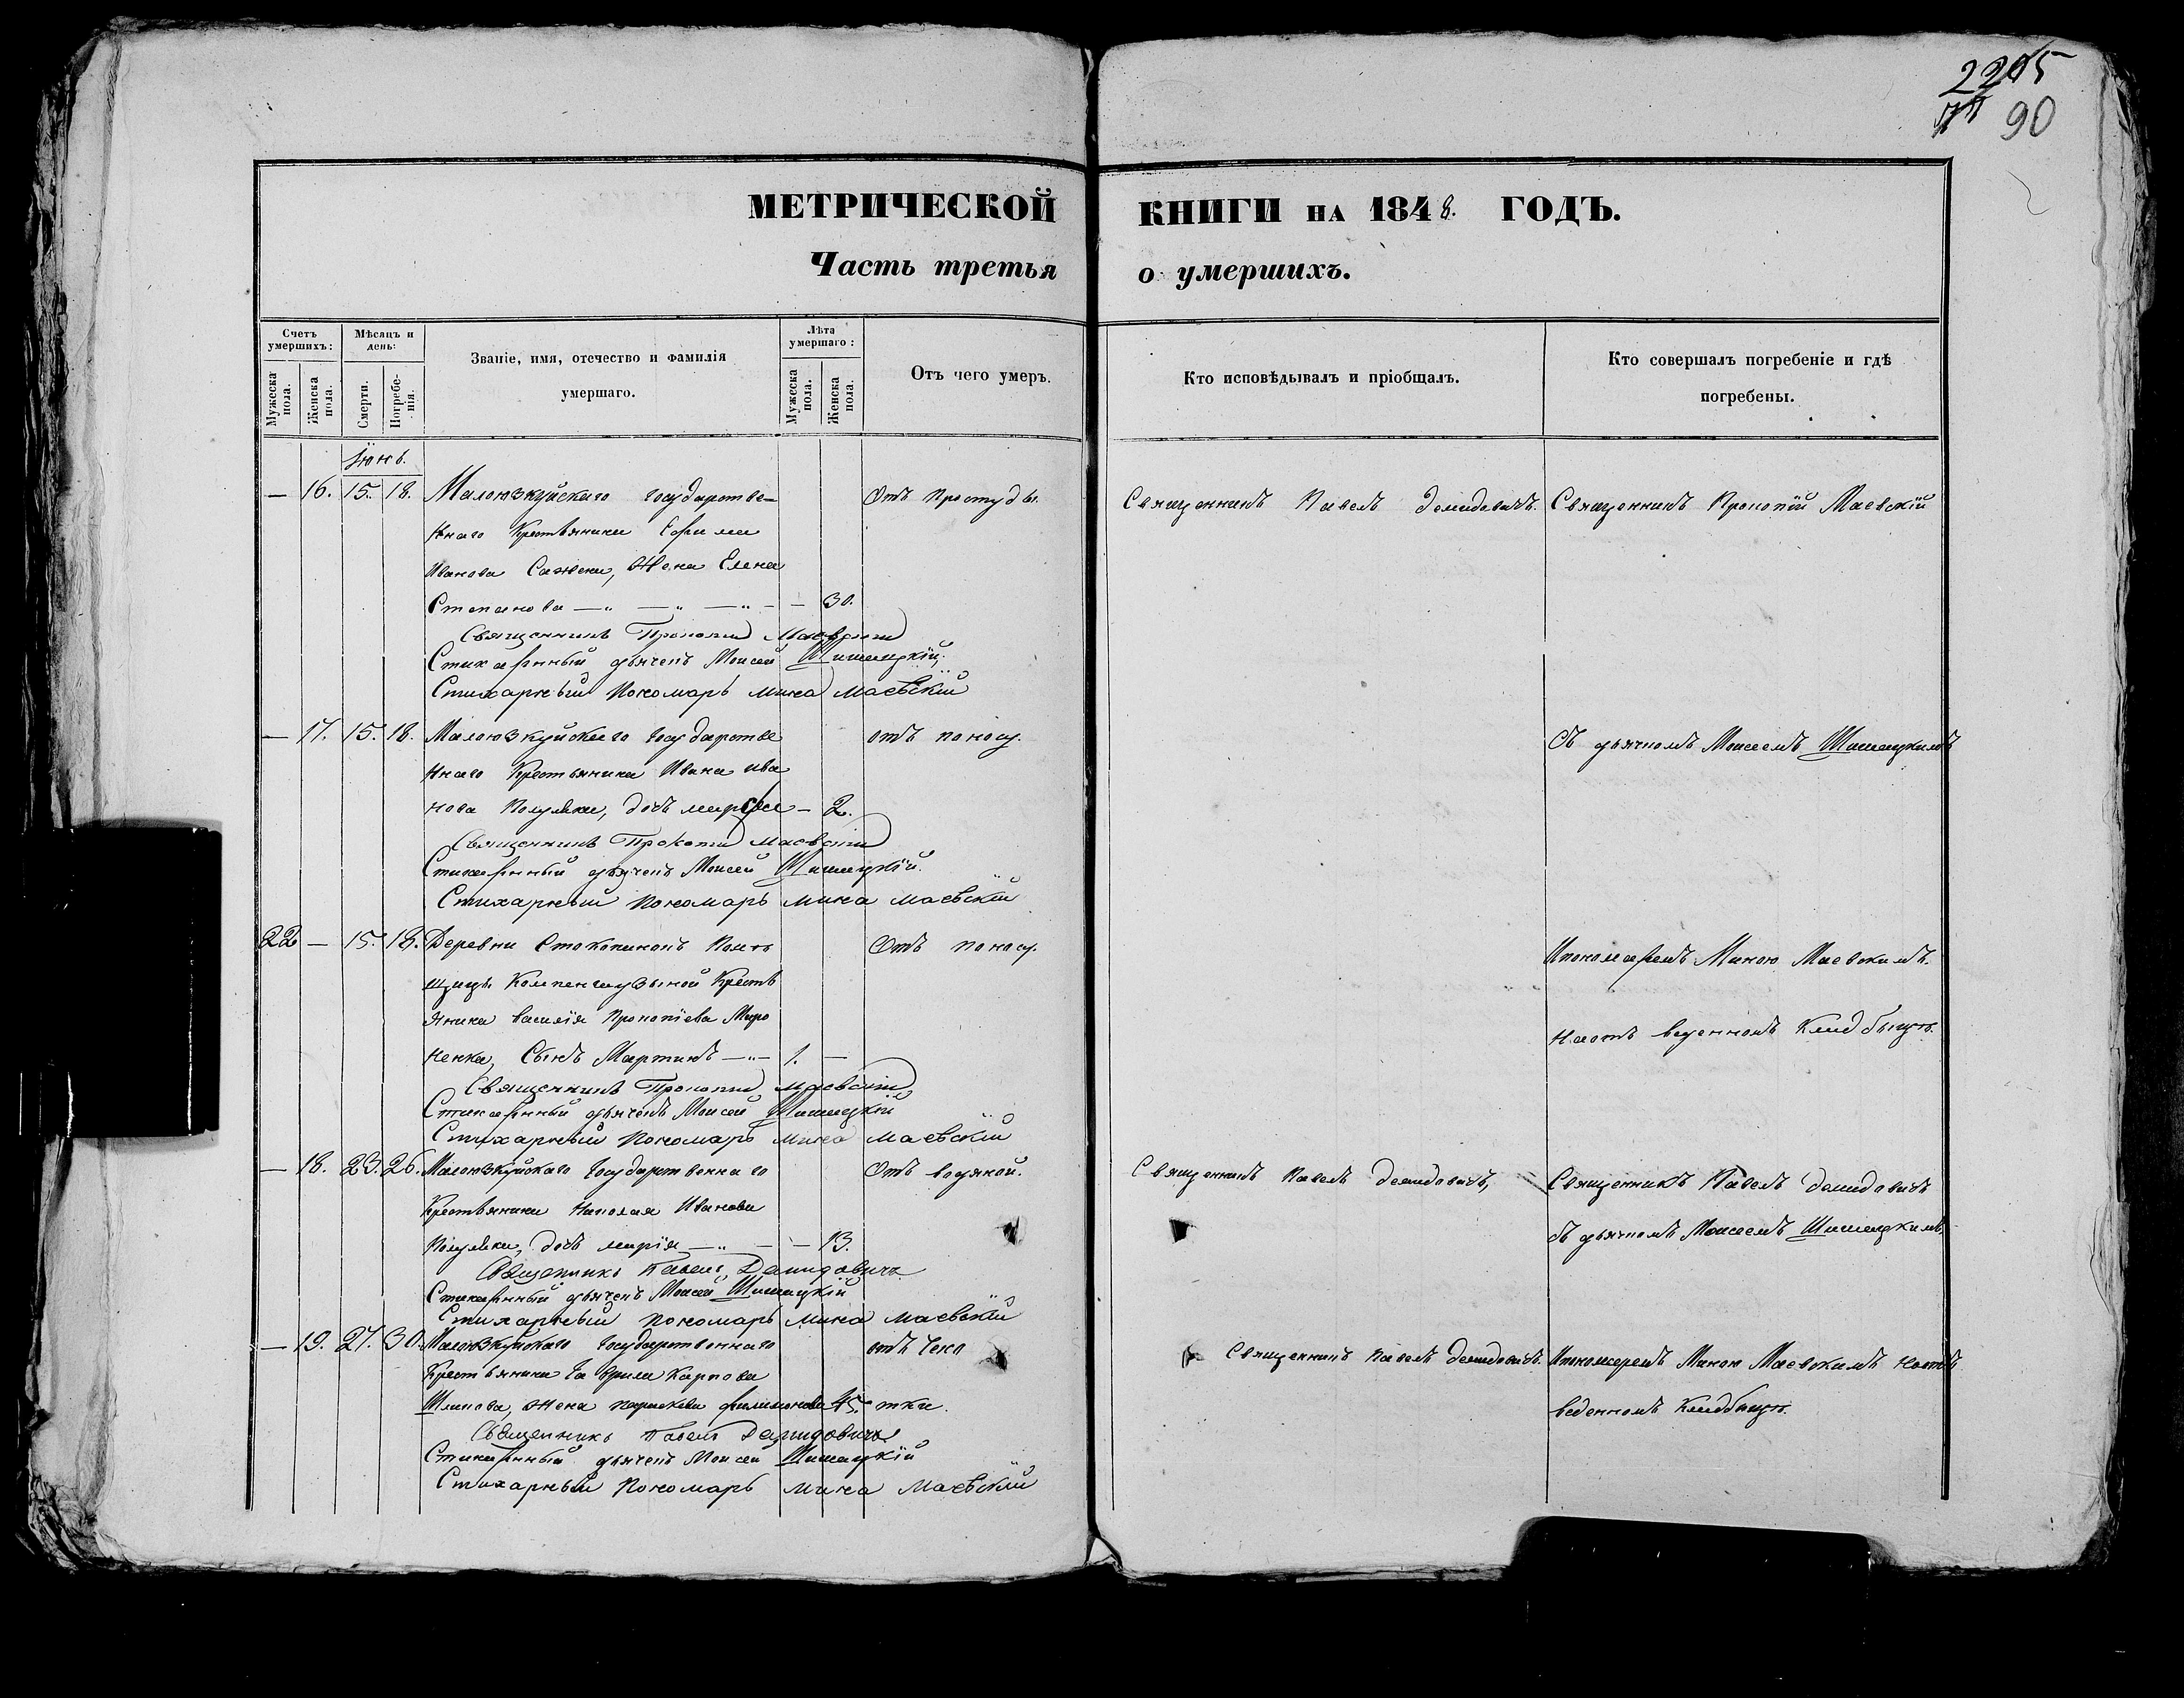 2205
90
МЕТРИЧЕСКОЙ КНИГИ НА 1848. ГОДЪ.
Часть третья о умершихъ.
Счетъ умершихъ:
Мужеска пола.
Женска пола.
Мѣсяцъ и день:
Смерти.
Погребенія.
Званіе, имя, отечество и фамилія
умершаго.
Лѣта умершаго:
Мужеска пола.
Женска пола.
Отъ чего умеръ.
Кто исповѣдывалъ и пріобщалъ.
Кто совершалъ погребеніе и гдѣ
погребены.
Іюнь.
— 16. 15. 18. Малоюзкуйскаго государстве- Отъ простуды. Священникъ Павелъ Демидовичъ. Священникъ Прокопій Маевскій
ннаго Крестьянина Ефима
Иванова Сажена, Жена Елена
Степанова — „ — „ — „ — — 30.
Священникъ Прокопій Маевскій
Стихарный дьячекъ Моисей Шишацкій.
Стихарный пономарь Мина Маевскій
— 17. 15. 18. Малоюзкуйскаго государстве отъ поносу. Съ дьячкомъ Моисеемъ Шишацкимъ
ннаго Крестьянина Ивана Ива
нова дочь — 2.
Священникъ Прокопій Маевскій
Стихарный дьячекъ Моисей Шишацкій.
Стихарный пономарь Мина Маевскій
22 — 15. 18. Деревни Помѣ Отъ поносу. Ипономаремъ Миною Маевскимъ.
щицы Крестья
янина Василія Прокопіева Миро
ненка, Сынъ Мартинъ — „ — 1. — Наотъ веденномъ Кладбищѣ.
Священникъ Прокопій Маевскій
Стихарный дьячекъ Моисей Шишацкій
Стихарный пономарь Мина Маевскій
— 18. 23. 26. Малоюзкуйскаго государственнаго Отъ водяной. Священникъ Павелъ Демидовичъ, Священникъ Павелъ Демидовичъ
Крестьянина Николая Иванова
дочь Марія — „ — — 13. Съ дьячкомъ Моисеемъ Шишацкимъ,
Священникъ Павелъ Демидовичъ
Стихарный дьячекъ Моисей Шишацкій
Стихарный пономарь Мина Маевскій
— 19. 27. 30. Малоюзкуйскаго государственнаго отъ чехо Священникъ Павелъ Демидовичъ. Ипономаремъ Миною Маевскимъ Наотъ
Крестьянина Гаврила Карпова
Жена Параскева Филимонова 45. тки. веденномъ Кладбищѣ.
Священникъ Павелъ Демидовичъ
Стихарный дьячекъ Моисей Шишацкій
Стихарный пономарь Мина Маевскій